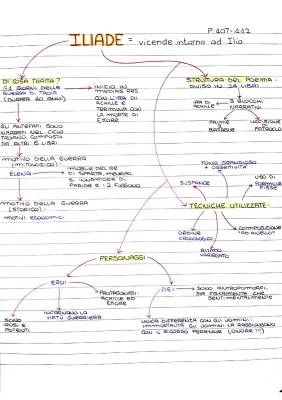 P. 407-442
ILIADE = vicende intorno ad Ilio
DI COSA TRATTA?
51 GIORNI DELLA
GUERRA DI TROIA
(DURATA 10 ANNI)
INIZIO IN
MEDIAS RES
CON L'IRA DI
ACHILLE E
TERMINA CON
LA MORTE DI
ETTORE
STRUTTURA DEL POEMA:
DIVISO IN 24 LIBRI
3 BLOCCHI
NARRATIVI
IRA DI
ACHILLE
PRIME
BATTAGLIE
UCCISIONE
DI PATROCLO
GLI ALTRI FATTI SONO
NARRATI NEL CICLO
TROIANO, COMPOSTO
DA ALTRI 6 LIBRI
MOTIVO DELLA GUERRA
(MITOLOGICO):
ELENA
MOGLIE DEL RE
DI SPARTA, MENELAO,
SI INNAMORA DI
PARIDE E I 2 FUGGONO
MOTIVO DELLA GUERRA
(STORICO):
MOTIVI ECONOMICI
TONO GRANDIOSO
+ OGGETTIVITÀ
SUSPANCE
USO DI
FORMULE
FISSE
TECNICHE UTILIZZATE:
ORDINE
CRONOLOGICO
RITMO
VARIEGATO
COMPOSIZIONE
"AD ANELLO"
PERSONAGGI
EROI
DEI
SONO
GROSSI E
POTENTI
INCARNANO LA
VIRTÙ GUERRIERA
PROTAGONISTI:
ACHILLE ED
ETTORE
SONO ANTROPOMORFI,
SIA FISICAMENTE CHE
SENTIMENTALMENTE
UNICA DIFFERENZA CON GLI UOMINI:
IMMORTALITÀ. GLI UOMINI LA RAGGIUNGONO
CON IL RICORDO PERENNE (ONORE!!!)